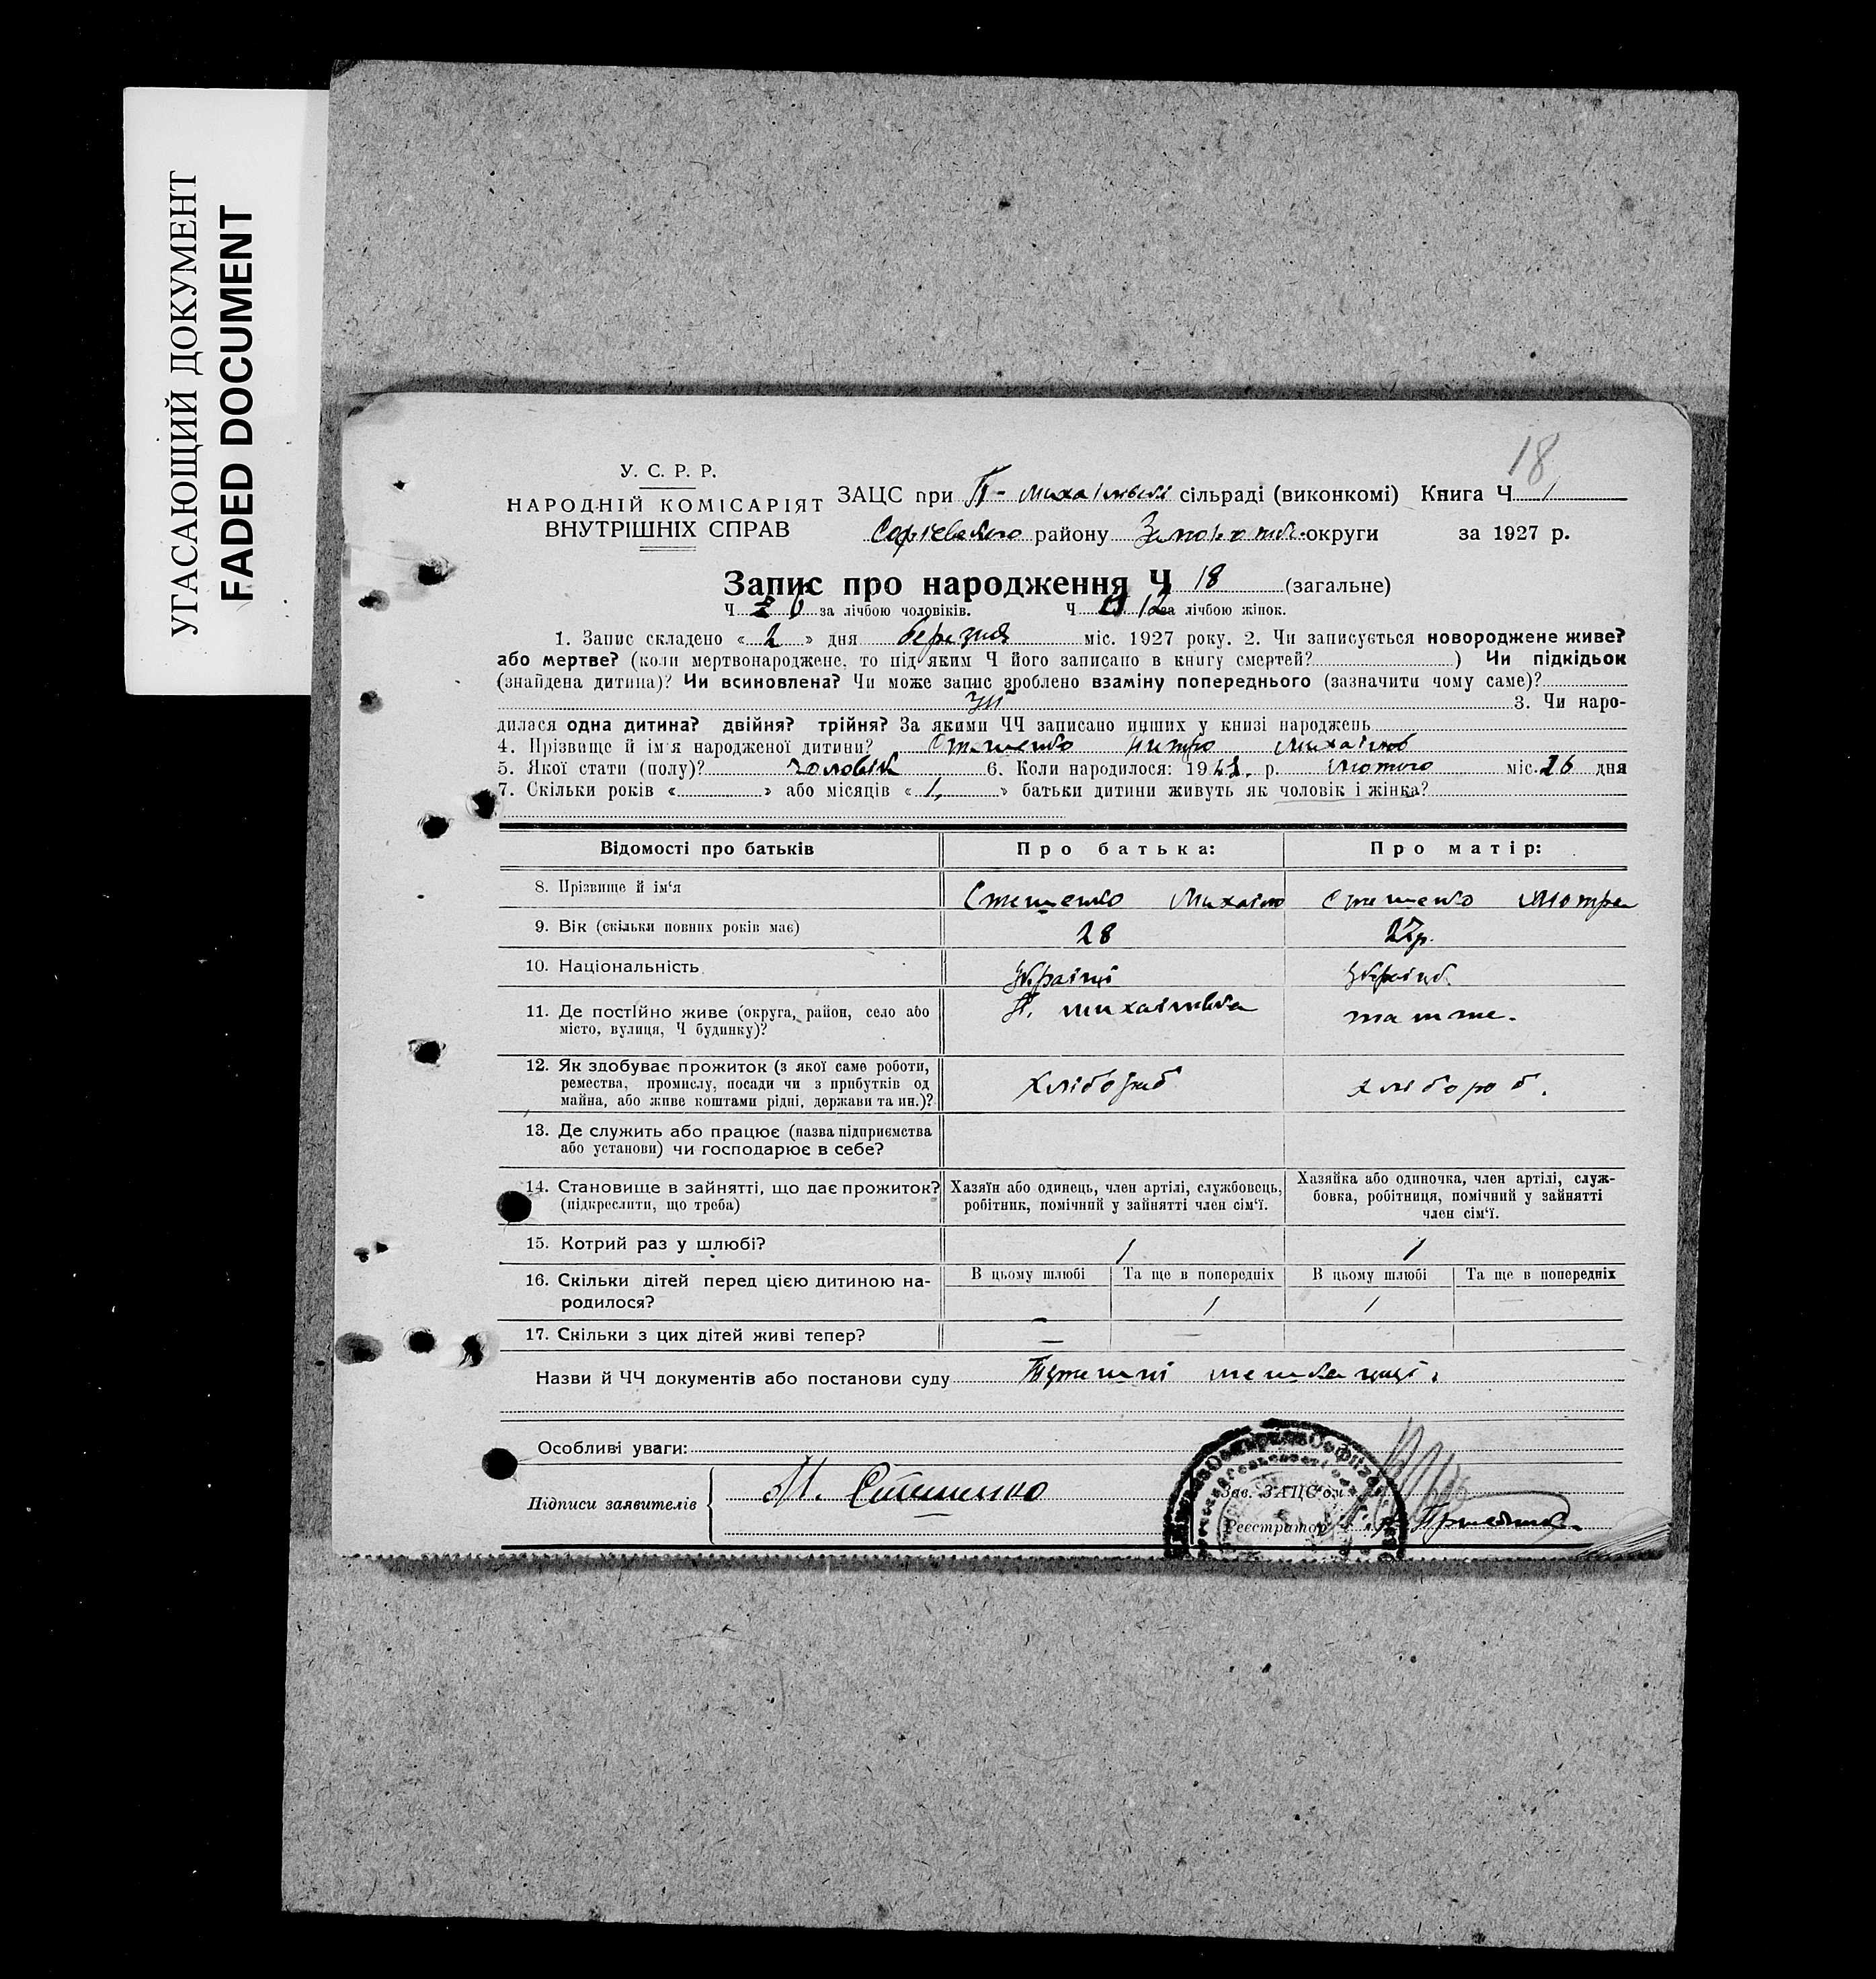 УГАСАЮЩИЙ ДОКУМЕНТ
FADED DOCUMENT
18
У. С. Р. Р.
НАРОДНІЙ КОМІСАРІЯТ
ВНУТРІШНІХ СПРАВ
ЗАЦС при П- Михайлівській сільраді (виконкомі) Книга Ч 1
Софієвського району округи за 1927 р.
Запис про народження Ч 18 (загальне)
Ч 6 за лічбою чоловіків. Ч 12 за лічбою жінок.
1. Запис складено « 2 » дня березня міс. 1927 року. 2. Чи записується новороджене живе?
або мертве? (коли мертвонароджене, то під яким Ч його записано в книгу смертей? ) Чи підкідьок
(знайдена дитина)? Чи всиновлена? Чи може запис зроблено взаміну попереднього (зазначити чому саме)?
3. Чи наро-
дилася одна дитина? двійня? трійня? За якими ЧЧ записано инших у книзі народжень
4. Прізвище й ім'я народженої дитини? Стешенко Михайлов
5. Якої стати (полу)? чоловік 6. Коли народилося: 19 р. лютого міс. 26 дня
7. Скільки років « » або місяців « 1, » батьки дитини живуть як чоловік і жінка?
Відомості про батьків Про батька: Про матір:
8. Прізвище й ім'я Стешенко Михайло Стешенко Мотря
9. Вік (скільки повних років має) 28 27р.
10. Національність Україні Україн.
11. Де постійно живе (округа, район, село або П. михайлівка та тже.
місто, вулиця, Ч будинку)?
12. Як здобуває прожиток (з якої саме роботи,
ремества, промислу, посади чи з прибутків од хлібороб хлібороб.
майна, або живе коштами рідні, держави та ин.)?
13. Де служить або працює (назва підприємства
або установи) чи господарює в себе?
14. Становище в зайнятті, що дає прожиток? Хазяїн або одинець, член артілі, службовець, Хазяйка або одиночка, член артілі, служ-
(підкреслити, що треба) робітник, помічний у зайнятті член сім'ї. бовка, робітниця, помічний у зайнятті
член сім'ї.
15. Котрий раз у шлюбі? 1 1
16. Скільки дітей перед цією дитиною на- В цьому шлюбі Та ще в попередніх В цьому шлюбі Та ще в попередніх
родилося? 1 1
17. Скільки з цих дітей живі тепер? — —
Назви й ЧЧ документів або постанови суду
Особливі уваги:
Підписи заявителів М. Стешенко
Зав. ЗАЦС'ом
Реєстратор